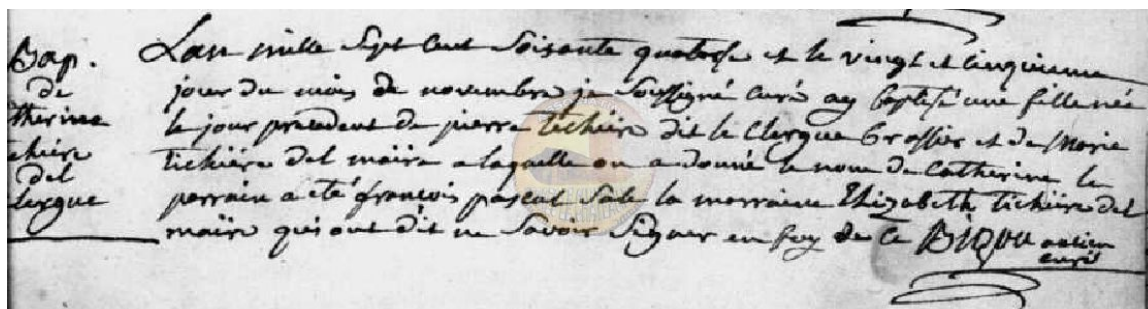 Bap.
de
therine
chière
del
lergue
Lan mille Sept Cent Soisante quatorse et le vingt et Cinquieme
jour du mois de novembre je Soussigné curé ay baptisé une fille née
le jour précédent de pierre tichière dit le Clergue Grossier et de Marie
tichière del maire a laquelle on a donné le nom de Catherine le
parrain a été françois pascal Sale la marraine Elizabeth tichière del
maire qui ont dit ne Savoir Signer en foy de Ce
curé